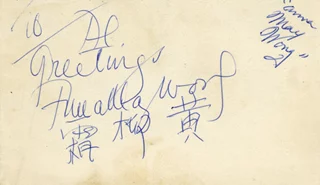 To
Greetings
Anna May Wong
霜 柳 黃
"Anna
May
Wong"